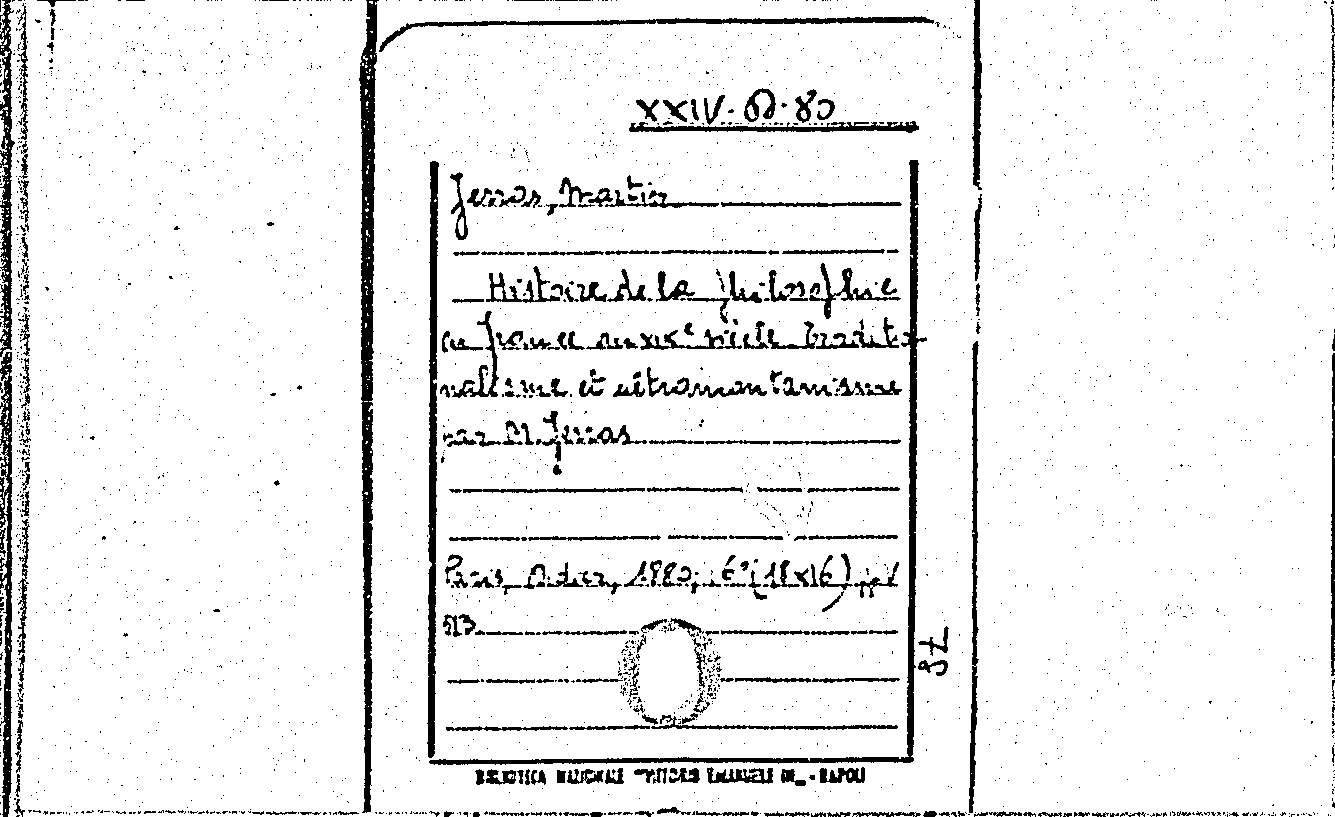 XXIV. D. 80
Ferras, Martin
Histoire de la philosophie
en France au XIXe siècle. Traditio-
nalisme et ultramontanisme
par M. Ferras
Paris, Didier, 1880; 6° (18x16) pp. V
513
37
BIBLIOTECA NAZIONALE "VITTORIO EMANUELE III" - NAPOLI